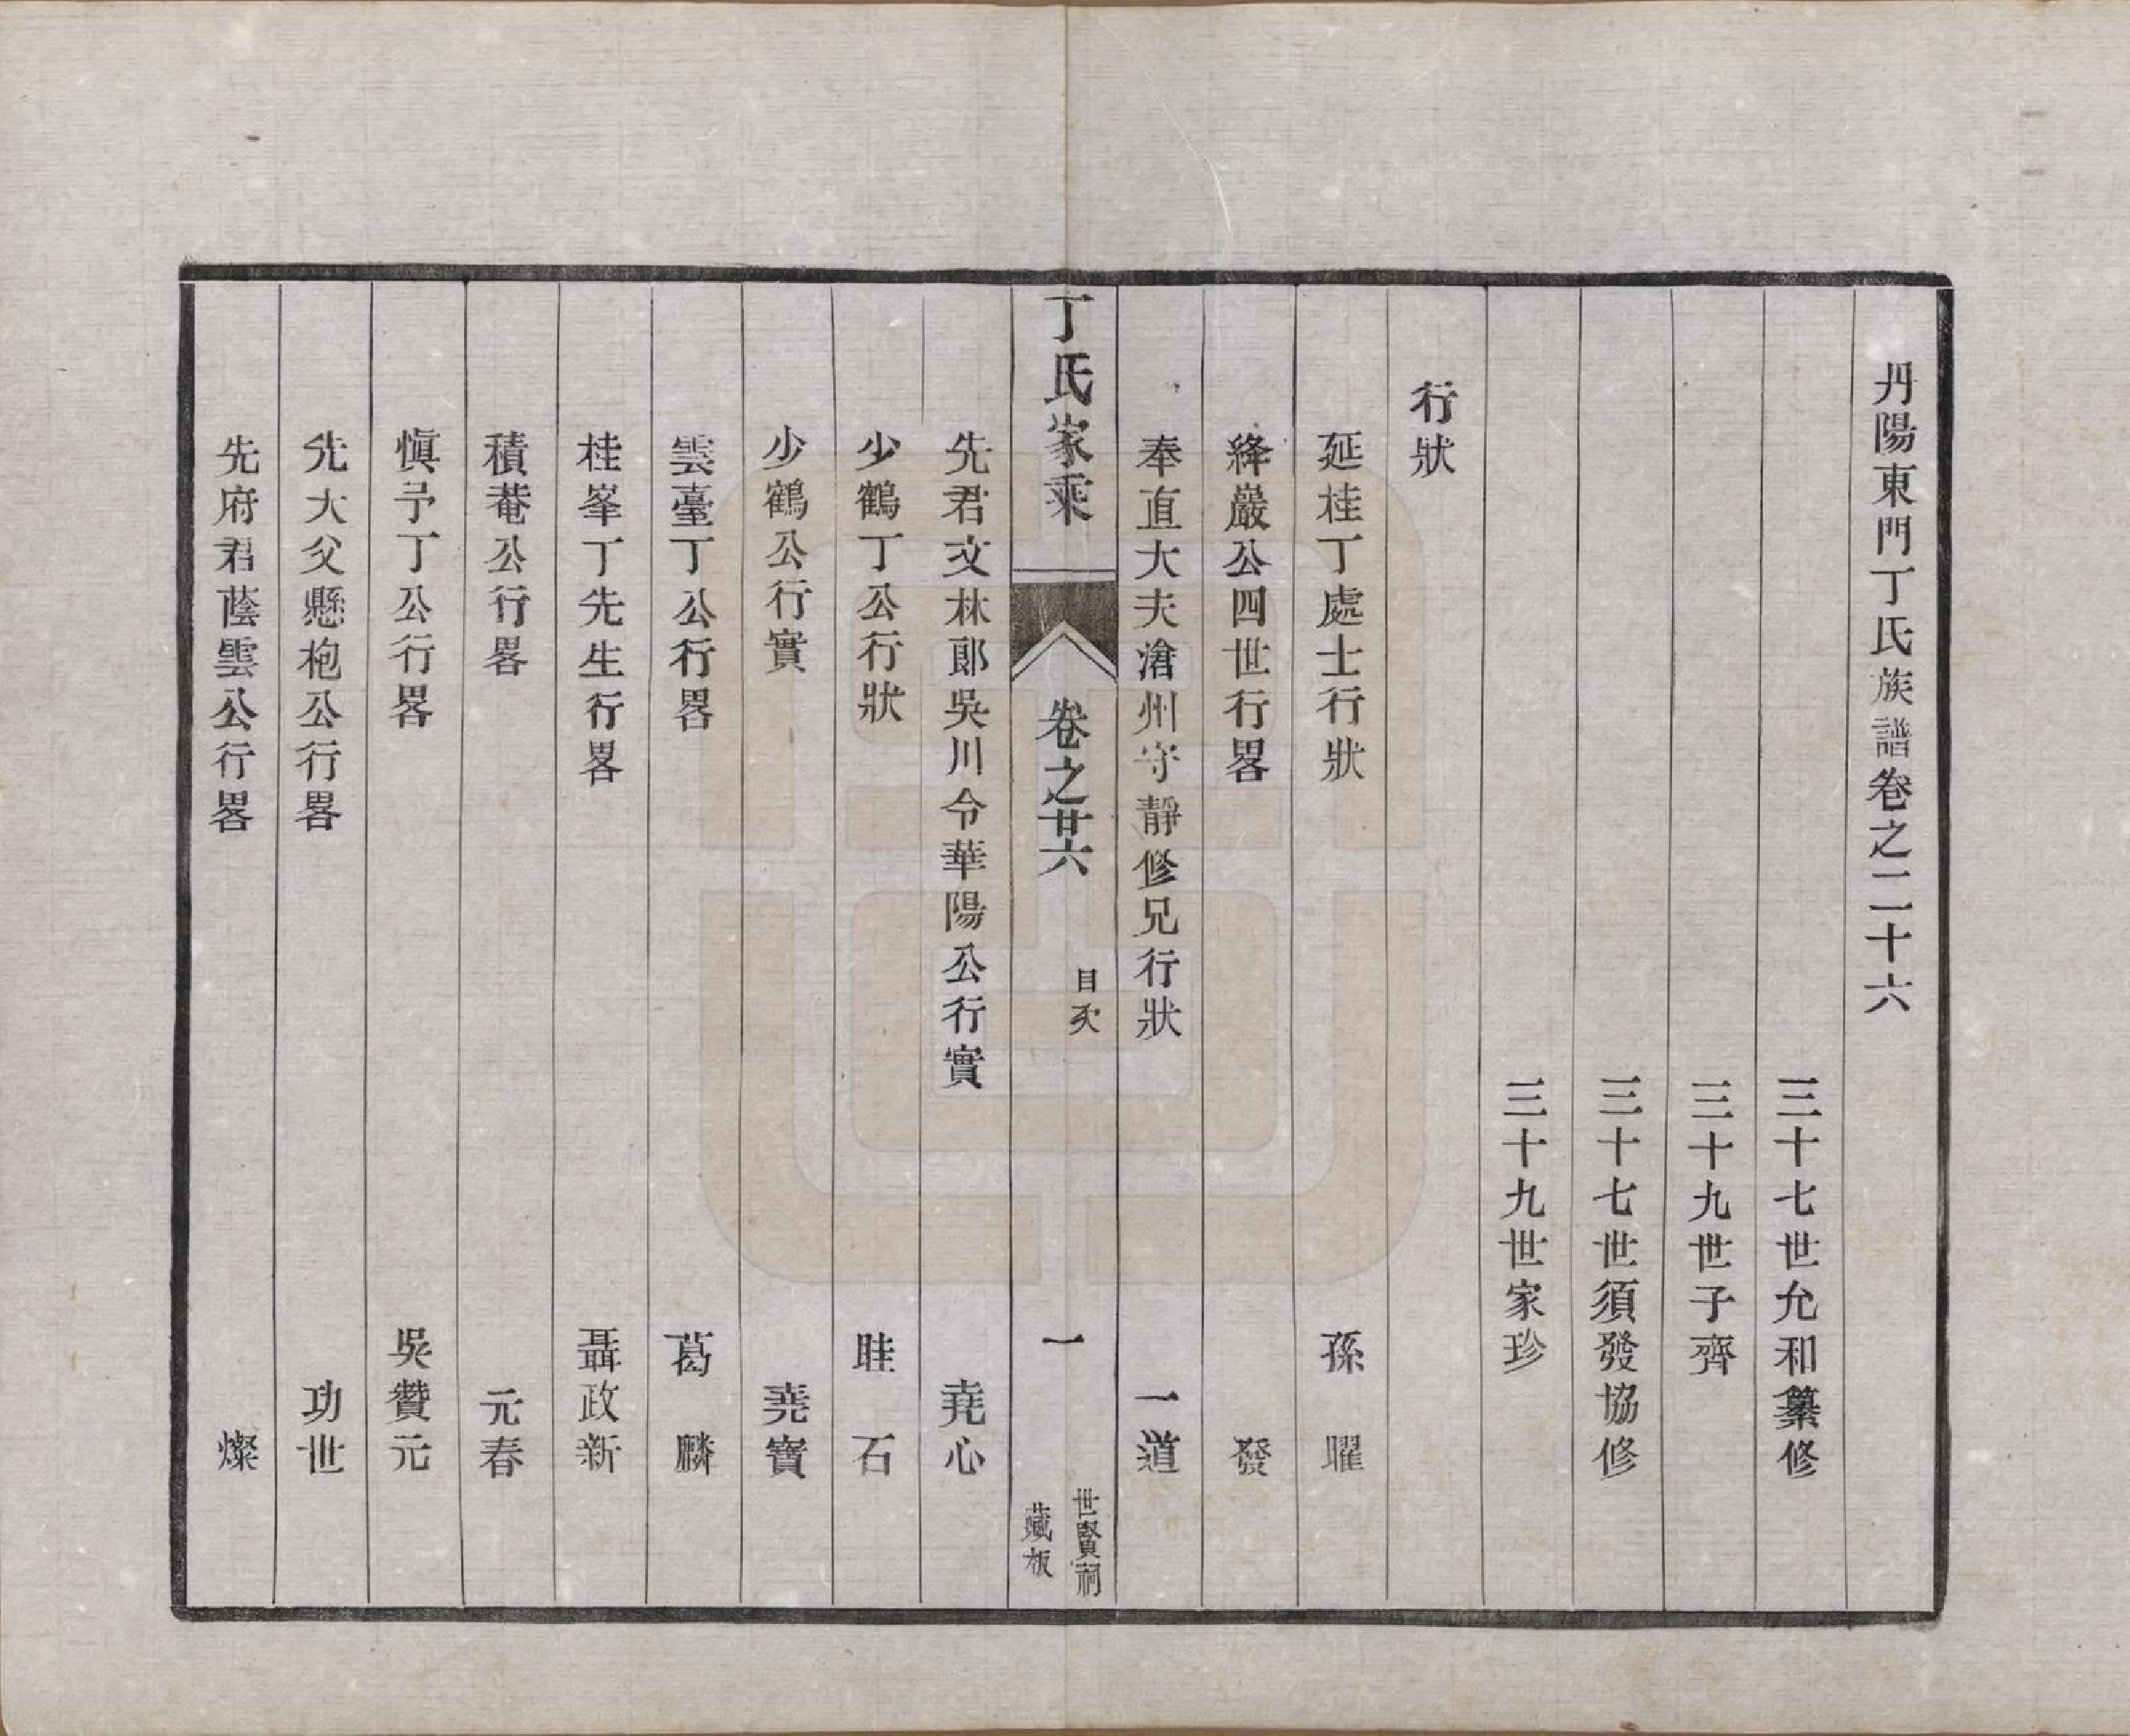 丹陽東門丁氏族譜卷之二十六
三十七世允和纂修
三十九世子齊
三十七世須發協修
三十九世家珍
行狀
延桂丁處士行狀 孫曜
絳巖公四世行畧 發
奉直大夫滄州守靜修兄行狀 一道
丁氏家乘 卷之廿六 目次 一 世賢祠藏板
先君文林郎吳川令華陽公行實 堯心
少鶴丁公行狀 眭石
少鶴公行實 堯寶
雲臺丁公行畧 葛麟
桂峯丁先生行畧 聶政新
積菴公行畧 元春
慎予丁公行畧 吳贊元
先大父懸枹公行畧 功世
先府君蔭雲公行畧 燦